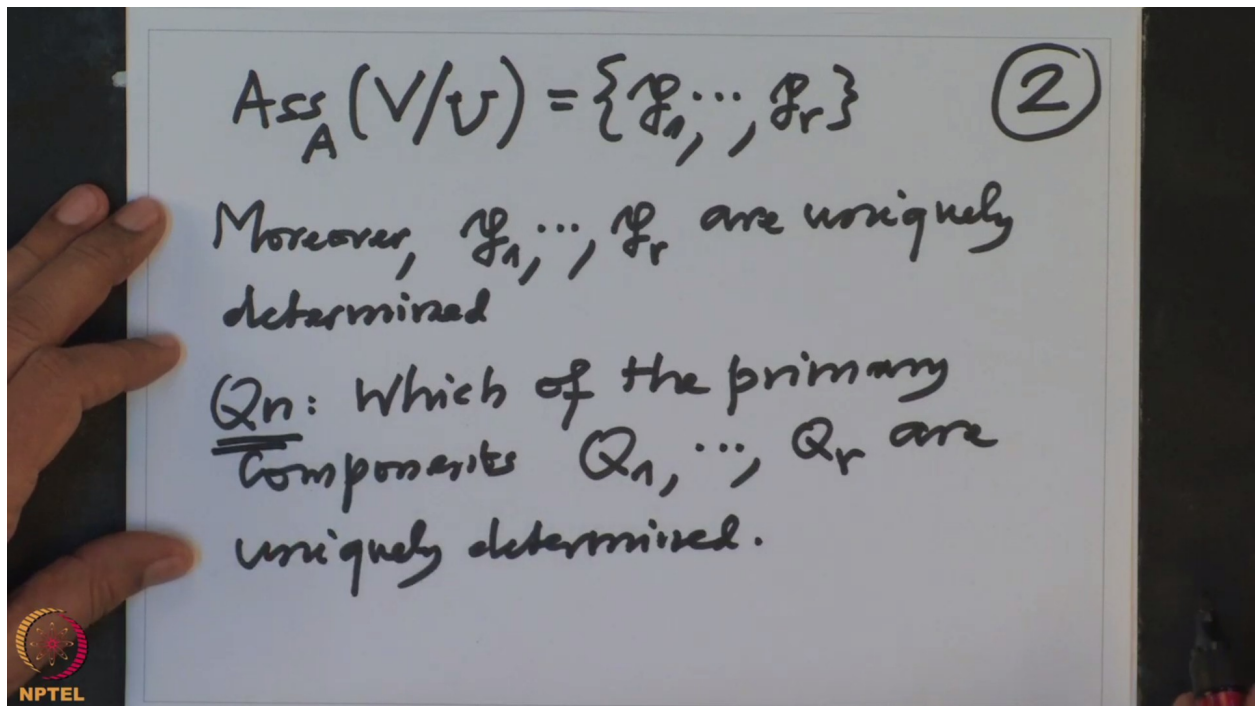 Ass_A (V/U) = {𝔭₁, ..., 𝔭ᵣ}
②
Moreover, 𝔭₁, ..., 𝔭ᵣ are uniquely
determined
Qn: Which of the primary
components Q₁, ..., Qᵣ are
uniquely determined.
NPTEL